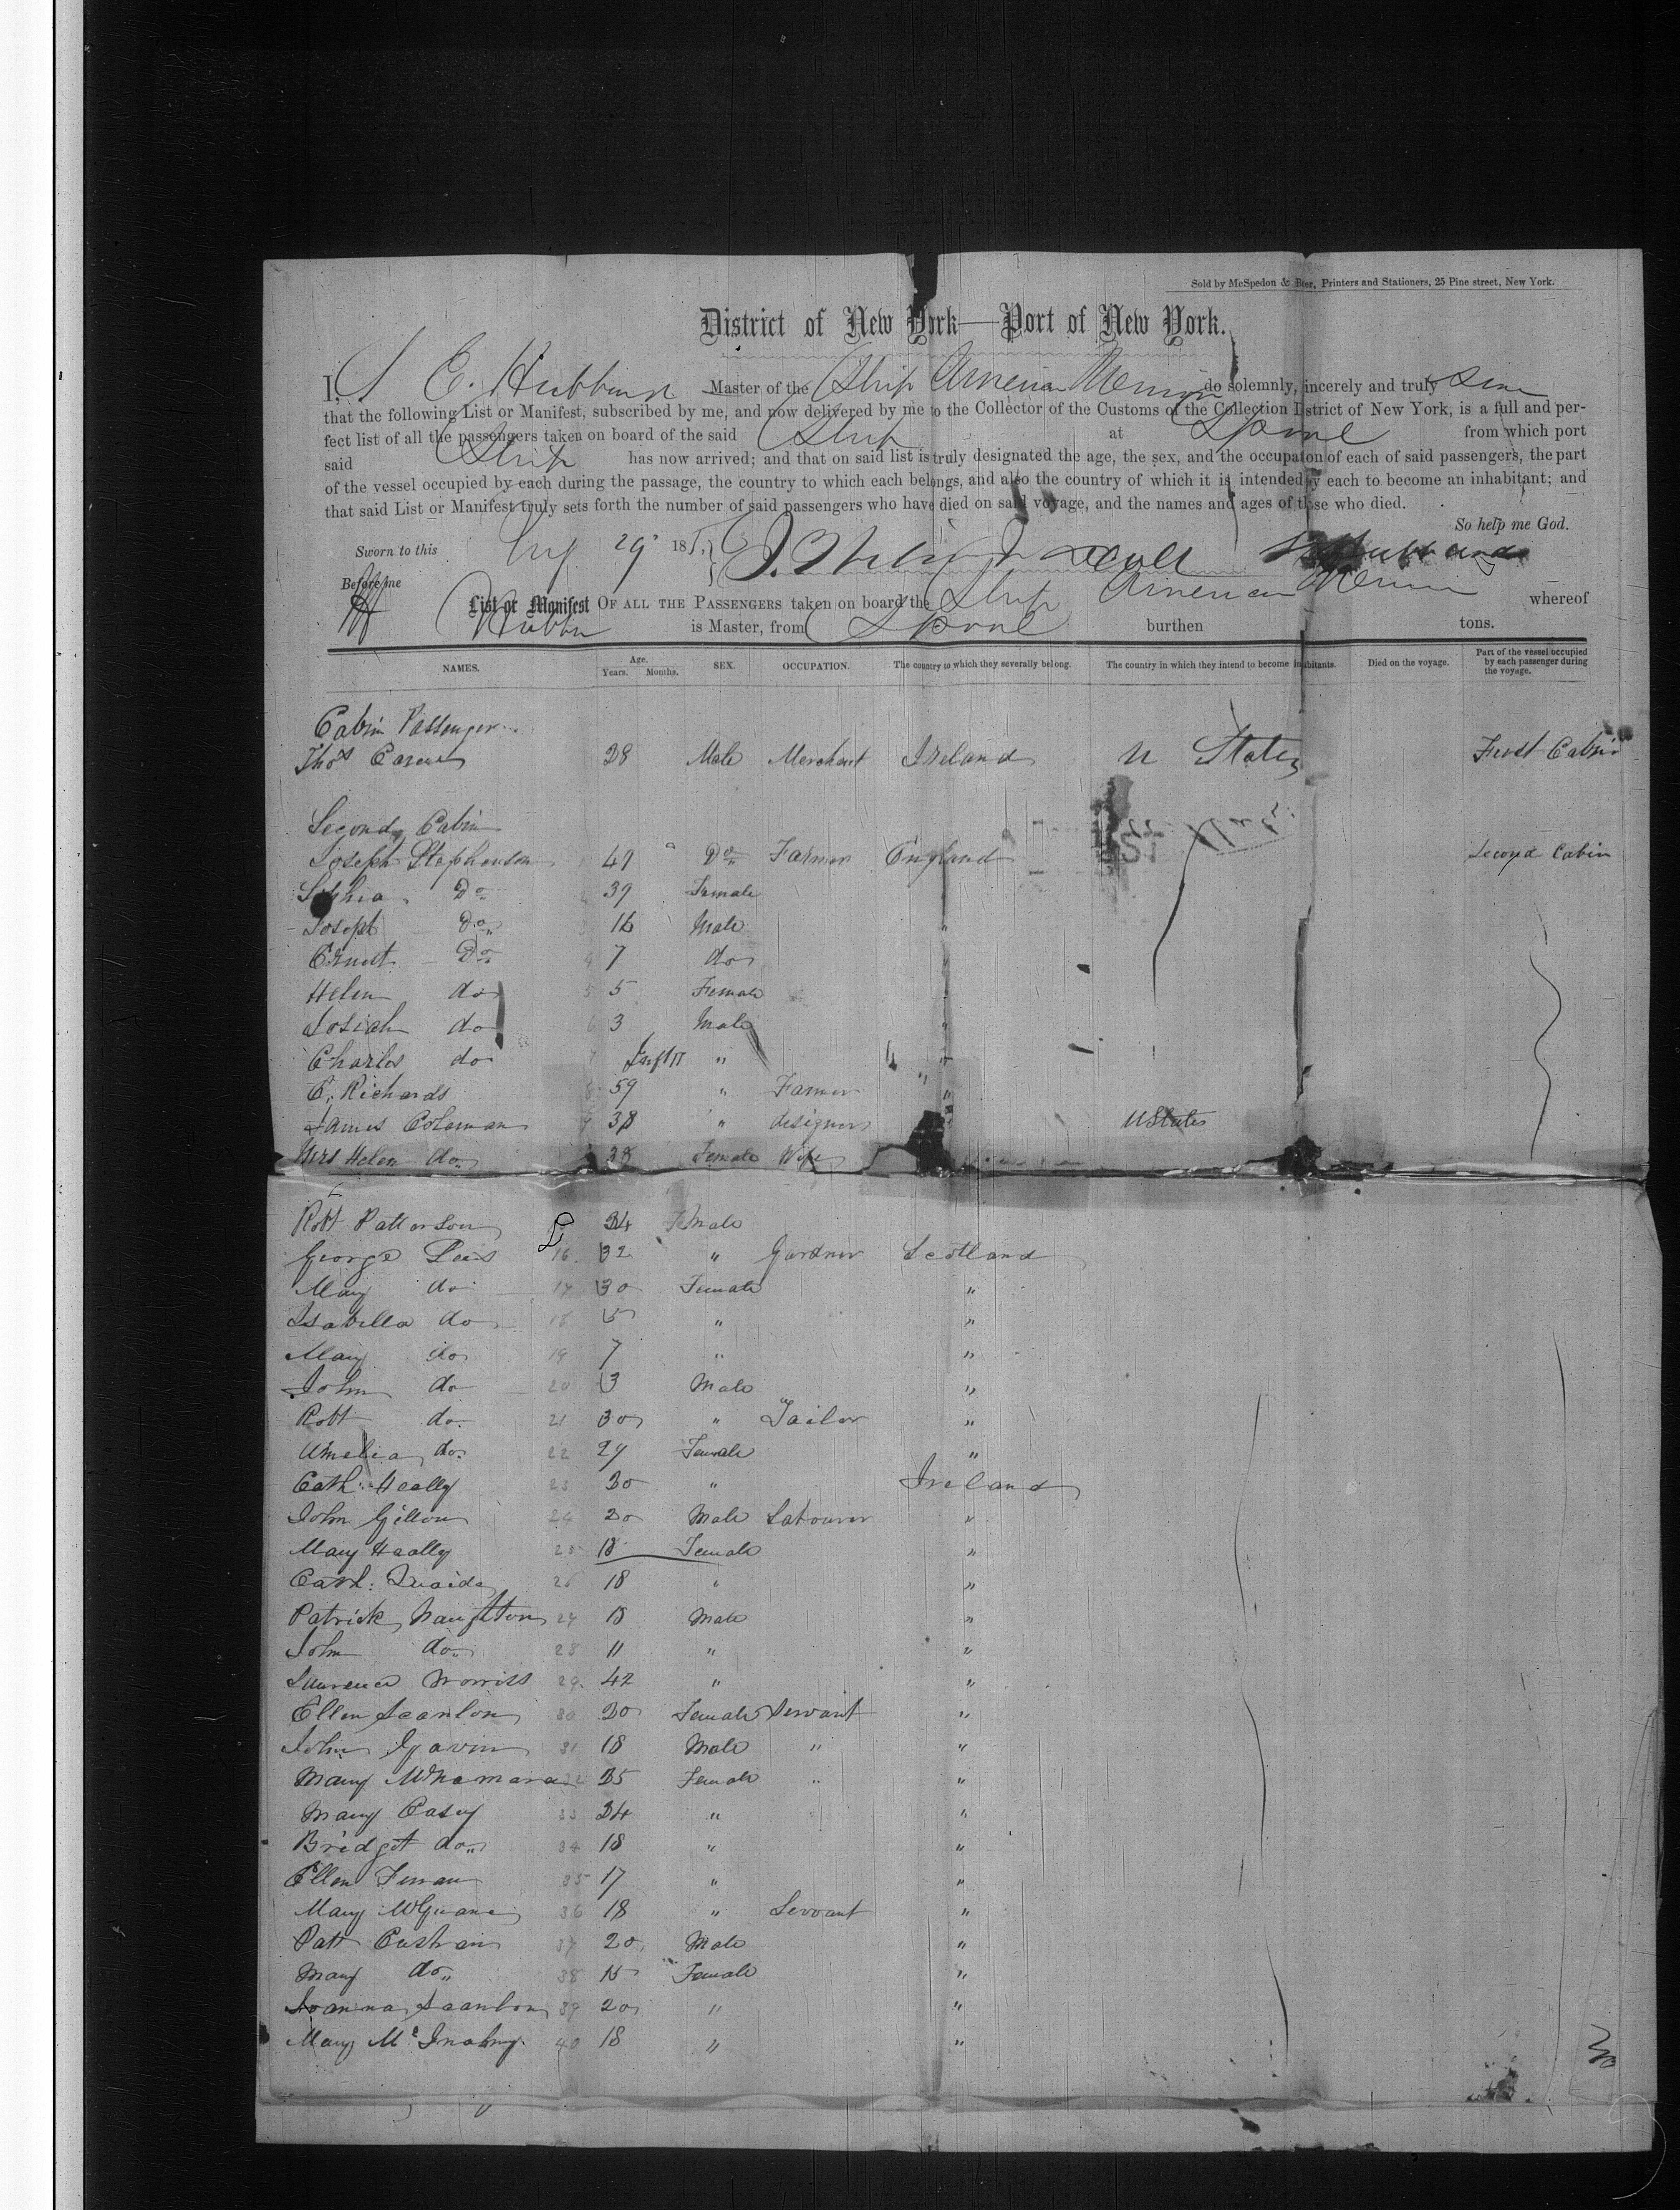 Sold by McSpedon & Baker, Printers and Stationers, 25 Pine street, New York.
District of New York—Port of New York.
I, S E. Hubbard Master of the Ship do solemnly, sincerely and truly
that the following List or Manifest, subscribed by me, and now delivered by me to the Collector of the Customs of the Collection District of New York, is a full and per-
fect list of all the passengers taken on board of the said Ship at Lpool from which port
said Ship has now arrived; and that on said list is truly designated the age, the sex, and the occupation of each of said passengers, the part
of the vessel occupied by each during the passage, the country to which each belongs, and also the country of which it is intended by each to become an inhabitant; and
that said List or Manifest truly sets forth the number of said passengers who have died on said voyage, and the names and ages of those who died.
So help me God.
Sworn to this Aug 29 185
Before me
List or Manifest OF ALL THE PASSENGERS taken on board the Ship whereof
is Master, from Lpool burthen tons.
NAMES. Age. Years. Months. SEX. OCCUPATION. The country to which they severally belong. The country in which they intend to become inhabitants. Died on the voyage. Part of the vessel occupied by each passenger during the voyage.
Cabin Passenger
Thos 28 Male Merchant Ireland U States First Cabin
Second Cabin
Joseph Stephenson 49 Do Farmer England Second Cabin
Sophia Do 39 Female
Joseph Do 16 Male "
Ernest Do 7 do "
Helen do 5 Female
Josiah do 3 Male "
Charles do Infant " "
C. Richards 59 " Farmer "
James Coleman 9 38 " designer UStates
Mrs Helen do 38 Female Wife
Robt Patterson 34 Male
George Lees 16 32 " Gardner Scotland
Mary do 17 30 Female "
Isabella do 18 5 " "
Mary do 19 7 " "
John do 20 3 Male "
Robt do 21 30 " Tailor "
Amelia do 22 29 Female "
Cath: Heally 23 30 " Ireland
John Gillon 24 20 Male Labourer "
Mary Haally 25 18 Female "
Cath: Quaide 26 18 " "
Patrick Naughton 27 18 Male "
John do 28 11 " "
Laurence Morriss 29 42 " "
Ellen Scanlon 30 20 Female Servant "
John Gavin 31 18 Male " "
Mary McNamara 32 35 Female " "
Mary Casey 33 34 " "
Bridget do 34 18 " "
Ellen 35 17 " "
Mary McGuane 36 18 " Servant "
Patt 37 20 Male "
Mary do 38 15 Female "
Joanna Scanlon 39 20 " "
Mary 40 18 " "